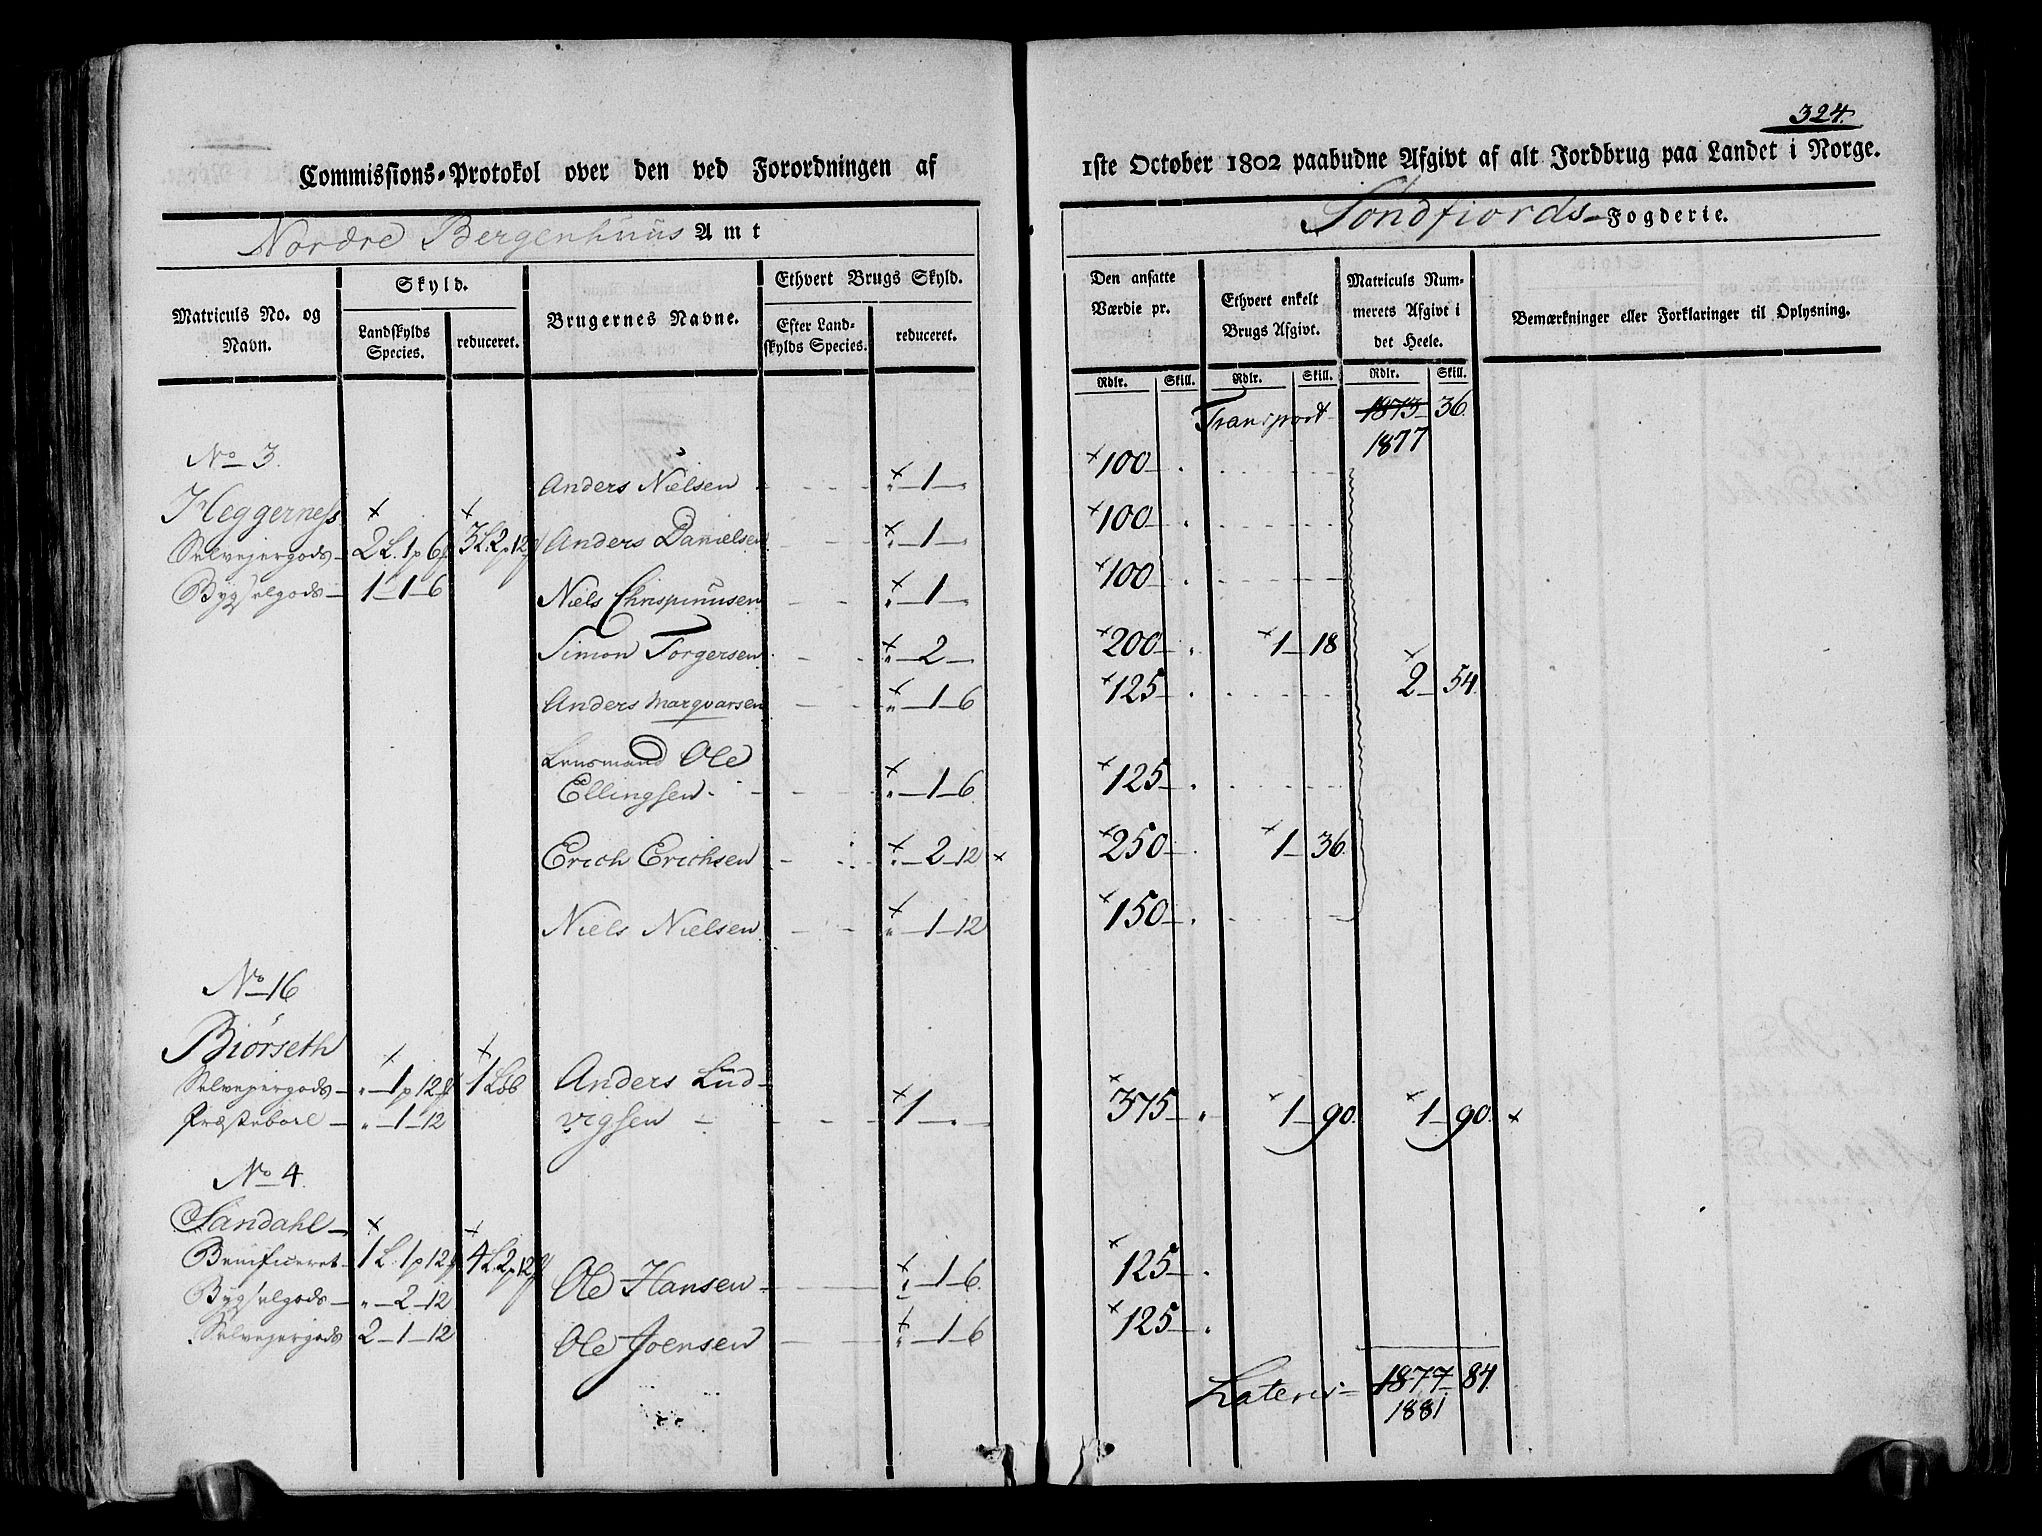 324.
Commissions-Protokol over den ved Forordningen af
1ste October 1802 paabudne Afgivt af alt Jordbrug paa Landet i Norge.
Nordre Bergenhuus Amt
Søndfiords-Fogderie.
Matriculs No. og Navn.
Skyld.
Landskylds Species.
reduceret.
Brugernes Navne.
Ethvert Brugs Skyld.
Efter Landskylds Species.
reduceret.
Den ansatte Værdie pr.
Ethvert enkelt Brugs Afgivt.
Matriculs Nummerets Afgivt i det Heele.
Bemærkninger eller Forklaringer til Oplysning.
Rdlr. Skill. Rdlr. Skill. Rdlr. Skill.
Transport 1873 36.
1877
No 3.
Anders Nielsen - 1 - 100
Heggerness
Selvejergods 2 L. 1 p 6 3 L. 2 p 12 Anders Danielsen - 1 - 100
Bygselgods 1 - 1 - 6 Niels Chrispinusen - 1 - 100
Simon Torgersen - 2 - 200 1 - 18
Anders Marqvarsen - 1 - 6 125 2 - 54.
Lensmand Ole
Ellingsen - 1 - 6. 125
Erich Erichsen - 2 - 12 × 250 1 - 36.
Niels Nielsen - 1 - 12 150
No 16
Biørseth
Selvejergods - 1 p 12 1 Løb Anders Lud-
Præstebol - 1 - 12 vigsen 1 - 375 1 - 90. 1 - 90. ×
No 4.
Sandahl
Beneficeret 1 L. 1 p 12 4 L. 2 p 12 Ole Hansen - 1 - 6. 125
Bygselgods - 2 - 12
Selvejergods 2 - 1 - 12 Ole Joensen - 1 - 6 125
Lateris 1877 84.
1881